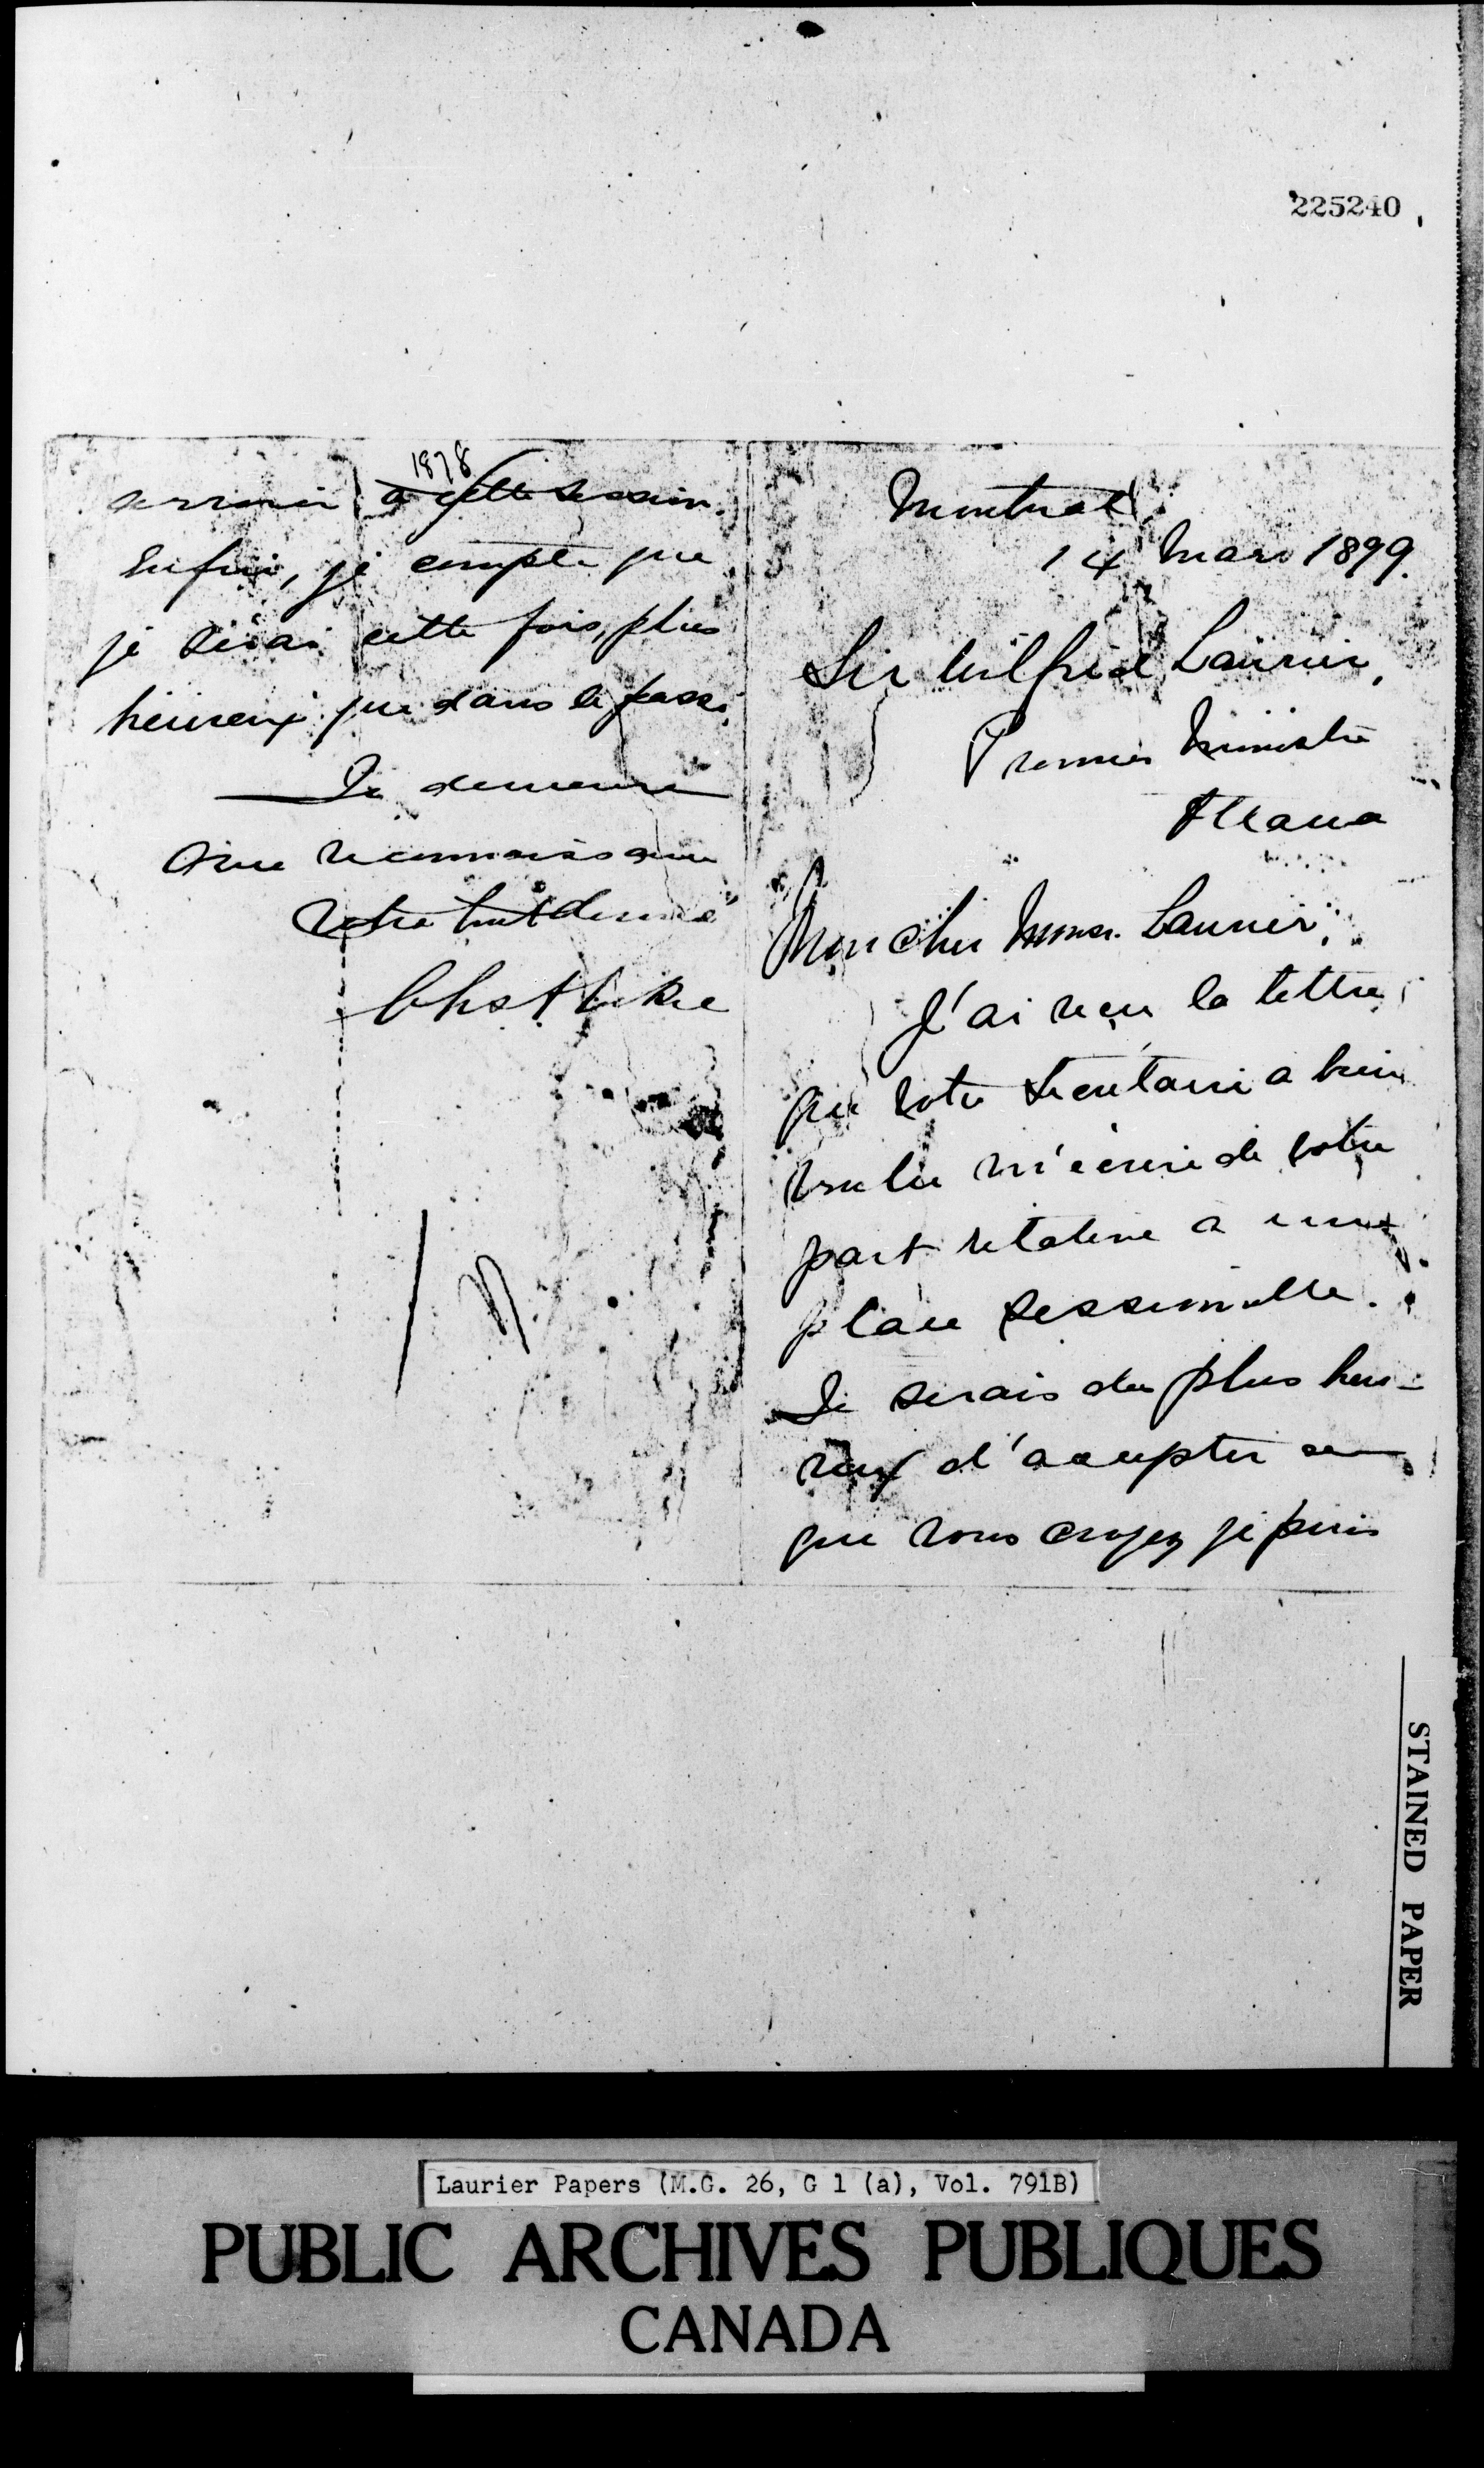 225240
Montreal
14 Mars 1899.
Sir Wilfrid Laurier,
Premier Ministre
Ottawa
Mon cher Monsr. Laurier,
J'ai reçu la lettre
que votre Secretaire a bien
voulu m'écrire de votre
part relative a une
place sessionnelle.
Je serais des plus heu-
reux d'accepter ce
que vous croyez je puis
1878
a cette session.
Enfin, je compte que
je serai cette fois, plus
heureux que dans le passé.
Je demeure
avec reconnaissance
Votre tout devoué
STAINED PAPER
Laurier Papers (M.G. 26, G 1 (a), Vol. 791B)
PUBLIC ARCHIVES PUBLIQUES
CANADA